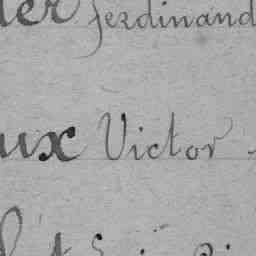 der ferdinand
ux Victor